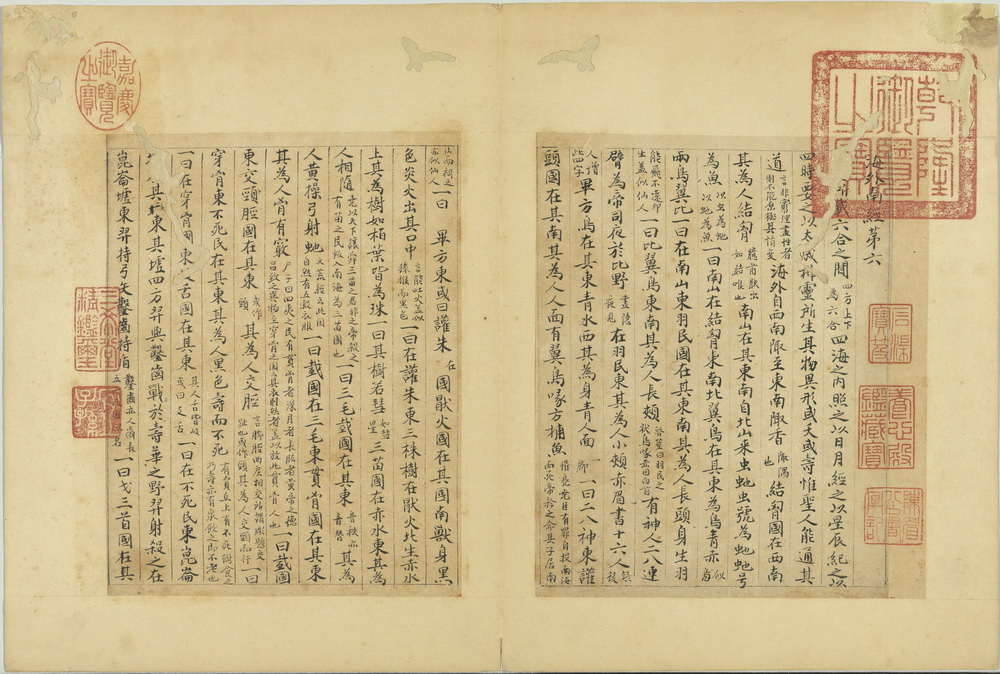 海外南經第六
六合之間四方上下為六合四海之内照之以日月經之以星辰紀之以
四時要之以太歲神靈所生其物異形或夭或壽惟聖人能通其
道言非窮理盡性者則不能原極其情变海外自西南陬至東南陬者陬隅也結匈國在西南
其為人結匈臆前胅出如結喉也南山在其東南自北山來虫虵虫號為虵虵号
為魚以虫為虵以虵為魚一曰南山在結匈東南北翼鳥在其東為鳥青赤似鳧
兩鳥翼比一曰在南山東羽民國在其東南其為人長頭身生羽
能飛不遠卵生盖似仙人一曰比翼鳥東南其為人長頰啓筮曰羽民之狀鳥喙赤目白首有神人二八連
臂為帝司夜於比野晝隱夜見在羽民東其為人小頰赤眉書十六人疑後
人增此四字畢方鳥在其東青水西其為身青人面一脚一曰二八神東讙
頭國在其南其為人人面有翼鳥喙方捕魚讙兠堯臣有罪自投南海而死帝矜之命其子居南
山而祠之亦似仙人一曰畢方東或曰讙朱在國獸火國在其國南獸身黑
色炎火出其口中言能吐火盖似猿猴而黑色一曰在讙朱東三株樹在獸火北生赤水
上其為樹如栢葉皆為珠一曰其樹若彗如彗星三苗國在赤水東其為
人相隨堯以天下讓舜三苗之君非之帝殺之有苗之民叛入南海為三苗國也一曰三毛臷國在其東音秩亦音替其為
人黄操弓射虵大荒經云此國自然有五穀衣服一曰臷國在三毛東貫胷國在其東
其為人胷有竅尸子曰四夷之民有貫胷者深目者長肱者黄帝之德一曰臷國
東交頸脛國在其東或作頸其為人交脛言脚脛曲戾相交一曰
穿胷東不死民在其東其為人黑色壽而不死有員丘山上有不死樹食之乃壽亦有泉飲之即不老也
一曰在穿胷國東舌國在其東其人舌皆岐或曰支舌一曰在不死民東崑崙
其東其墟四方羿與鑿齒戰於壽華之野羿射殺之在
崑崙墟東羿持弓矢鑿齒持盾鑿齒亦人齒長五一曰戈三首國在其
嘉慶御覽之寶
乾隆御覽之寶
三希堂精鑑璽
宜子孫
石渠寶笈
養心殿鑑藏寶